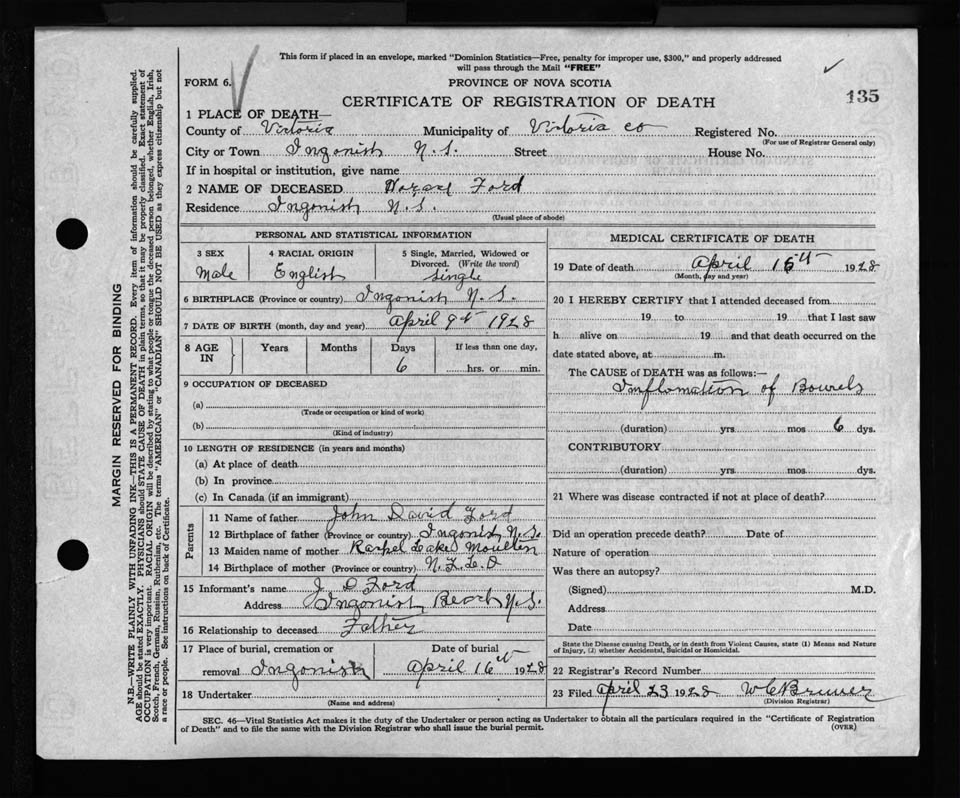 This form if placed in an envelope, marked "Dominion Statistics—Free, penalty for improper use, $300," and properly addressed
will pass through the Mail "FREE"
FORM 6.
PROVINCE OF NOVA SCOTIA
CERTIFICATE OF REGISTRATION OF DEATH
135
1 PLACE OF DEATH—
County of Victoria Municipality of Victoria Co Registered No.
(For use of Registrar General only)
City or Town Ingonish N.S. Street House No.
If in hospital or institution, give name
2 NAME OF DECEASED Ford
Residence Ingonish N.S.
(Usual place of abode)
PERSONAL AND STATISTICAL INFORMATION
3 SEX 4 RACIAL ORIGIN 5 Single, Married, Widowed or Divorced. (Write the word)
Male English Single
6 BIRTHPLACE (Province or country) Ingonish N.S.
7 DATE OF BIRTH (month, day and year) April 9th 1928
8 AGE IN Years Months Days If less than one day,
6 hrs. or min.
9 OCCUPATION OF DECEASED
(a)
(Trade or occupation or kind of work)
(b)
(Kind of industry)
10 LENGTH OF RESIDENCE (in years and months)
(a) At place of death
(b) In province
(c) In Canada (if an immigrant)
Parents
11 Name of father John David Ford
12 Birthplace of father (Province or country) Ingonish N.S.
13 Maiden name of mother Moulton
14 Birthplace of mother (Province or country) N.F.L.D
15 Informant's name J D Ford
Address Ingonish Beach N.S.
16 Relationship to deceased Father
17 Place of burial, cremation or removal Ingonish
Date of burial April 16th 1928
18 Undertaker
(Name and address)
MEDICAL CERTIFICATE OF DEATH
19 Date of death April 15th 1928
(Month, day and year)
20 I HEREBY CERTIFY that I attended deceased from
19 to 19 that I last saw
h alive on 19 and that death occurred on the
date stated above, at m.
The CAUSE of DEATH was as follows:—
Inflomation of Bowels
(duration) yrs. mos 6 dys.
CONTRIBUTORY
(duration) yrs. mos. dys.
21 Where was disease contracted if not at place of death?
Did an operation precede death? Date of
Nature of operation
Was there an autopsy?
(Signed) M.D.
Address
Date
State the Disease causing Death, or in death from Violent Causes, state (1) Means and Nature
of Injury, (2) whether Accidental, Suicidal or Homicidal.
22 Registrar's Record Number
23 Filed April 23 1928
(Division Registrar)
SEC. 46—Vital Statistics Act makes it the duty of the Undertaker or person acting as Undertaker to obtain all the particulars required in the "Certificate of Registration
of Death" and to file the same with the Division Registrar who shall issue the burial permit.
(OVER)
MARGIN RESERVED FOR BINDING
N.B.—WRITE PLAINLY WITH UNFADING INK—THIS IS A PERMANENT RECORD. Every item of information should be carefully supplied.
AGE should be stated EXACTLY. PHYSICIANS should STATE CAUSE OF DEATH in plain terms, so that it may be properly classified. Exact statement of
OCCUPATION is very important. RACIAL ORIGIN will be described by stating to what people or tongue the deceased person belonged, whether English, Irish,
Scotch, French, German, Russian, Ruthenian, etc. The terms "AMERICAN" or "CANADIAN" SHOULD NOT BE USED as they express citizenship but not
a race or people. See instructions on back of Certificate.